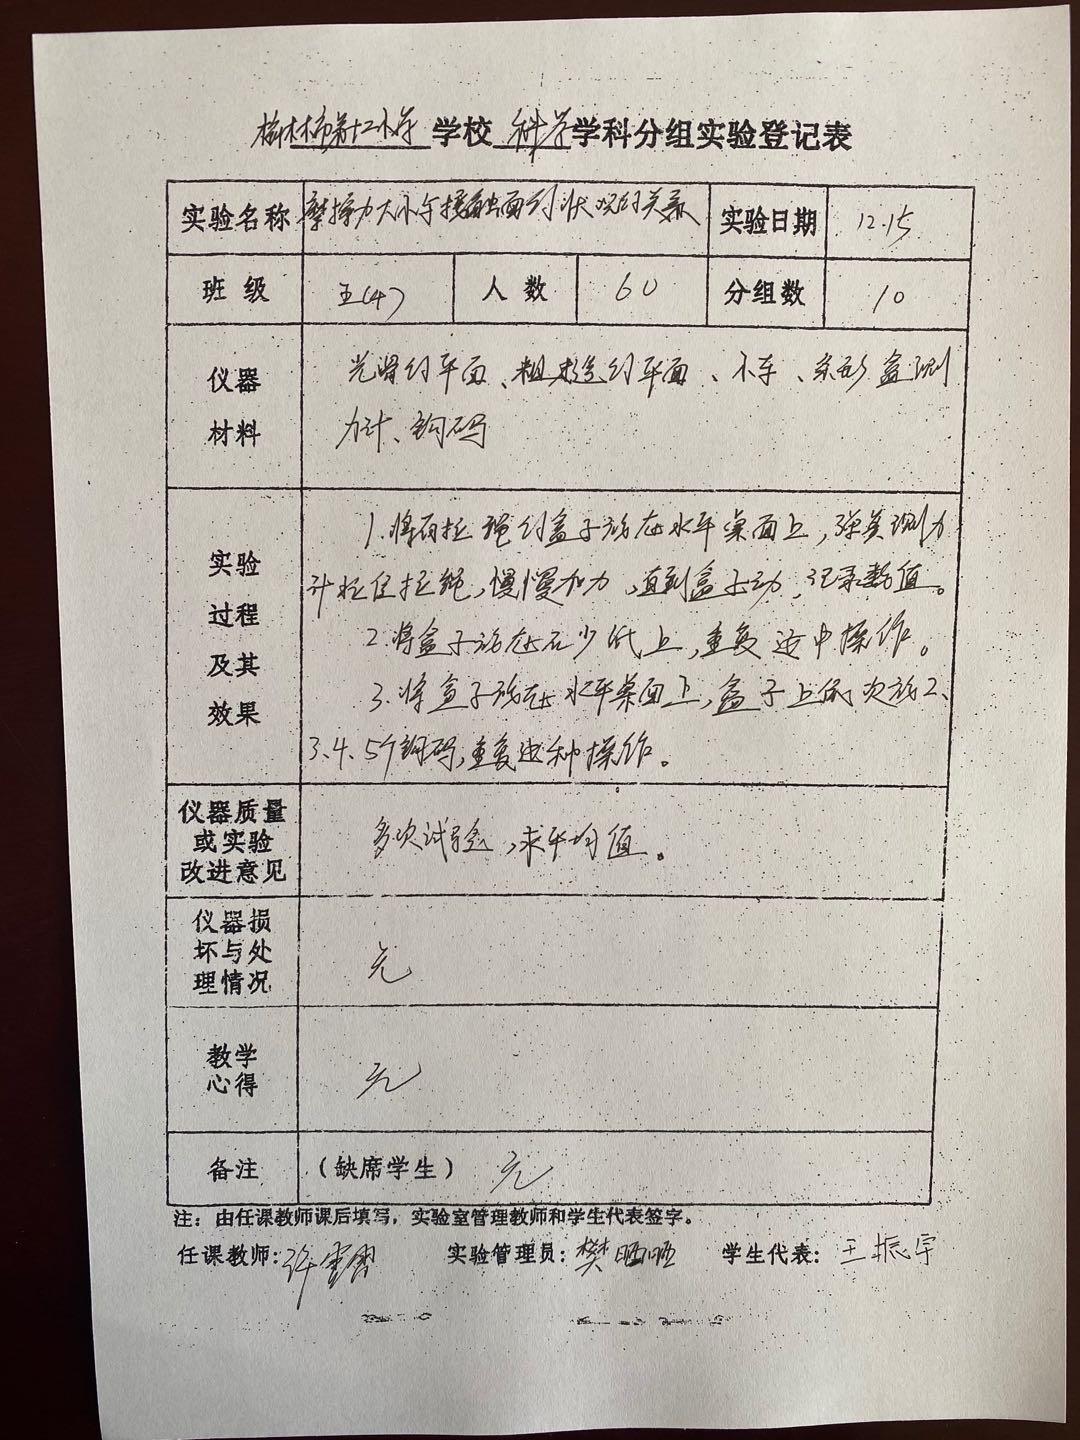 榆林市第十二小学 学校 科学 学科分组实验登记表
实验名称 摩擦力大小与接触面的状况的关系 实验日期 12.15
班级 五(4) 人数 60 分组数 10
仪器材料
光滑的平面、粗糙的平面、小车、条形盒测
力计、钩码
实验过程及其效果
1.将有拉绳的盒子放在水平桌面上,弹簧测力
计拉住拉绳,慢慢加力,直到盒子动,记录数值。
2.将盒子放在石少纸上,重复这中操作。
3.将盒子放在水平桌面上,盒子上依次放2、
3、4、5个钩码,重复这种操作。
仪器质量
或实验
改进意见
多次试验,求平均值。
仪器损
坏与处
理情况
无
教学
心得
无
备注 (缺席学生) 无
注:由任课教师课后填写,实验室管理教师和学生代表签字。
任课教师: 许 实验管理员:樊晒晒 学生代表:王振宇